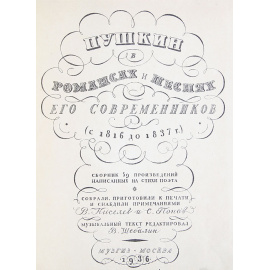 ПУШКИН
в
РОМАНСАХ и ПЕСНЯХ
ЕГО СОВРЕМЕННИКОВ
(с 1816 до 1837 г.)
СБОРНИК 52 ПРОИЗВЕДЕНИЙ
НАПИСАННЫХ НА СТИХИ ПОЭТА
СОБРАЛИ, ПРИГОТОВИЛИ К ПЕЧАТИ
И СНАБДИЛИ ПРИМЕЧАНИЯМИ
В. Киселев и С. Попов
МУЗЫКАЛЬНЫЙ ТЕКСТ РЕДАКТИРОВАЛ
В. Шебалин
МУЗГИЗ - МОСКВА
1936